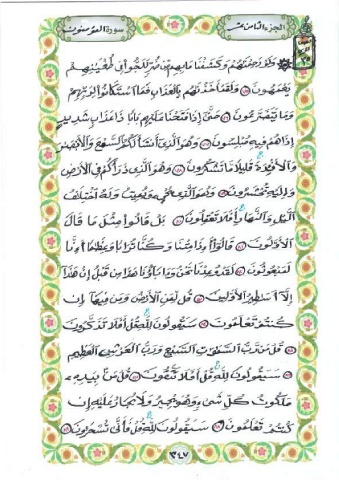 الجزء الثامن عشر
سورة المؤمنون
ولو رحمنهم وكشفنا ما بهم من ضر للجوا في طغينهم
يعمهون ولقد أخذنهم بالعذاب فما استكانوا لربهم
وما يتضرعون حتى إذا فتحنا عليهم بابا ذا عذاب شديد
إذا هم فيه مبلسون وهو الذي أنشأ لكم السمع والأبصر
والأفئدة قليلا ما تشكرون وهو الذي ذرأكم في الأرض
وإليه تحشرون وهو الذي يحي ويميت وله اختلف
اليل والنهار أفلا تعقلون بل قالوا مثل ما قال
الأولون قالوا أءذا متنا وكنا ترابا وعظما أءنا
لمبعوثون لقد وعدنا نحن وءاباؤنا هذا من قبل إن هذا
إلا أسطير الأولين قل لمن الأرض ومن فيها إن
كنتم تعلمون سيقولون لله قل أفلا تذكرون
قل من رب السموت السبع ورب العرش العظيم
سيقولون لله قل أفلا تتقون قل من بيده
ملكوت كل شيء وهو يجير ولا يجار عليه إن
كنتم تعلمون سيقولون لله قل فأنى تسحرون
٣٤٧